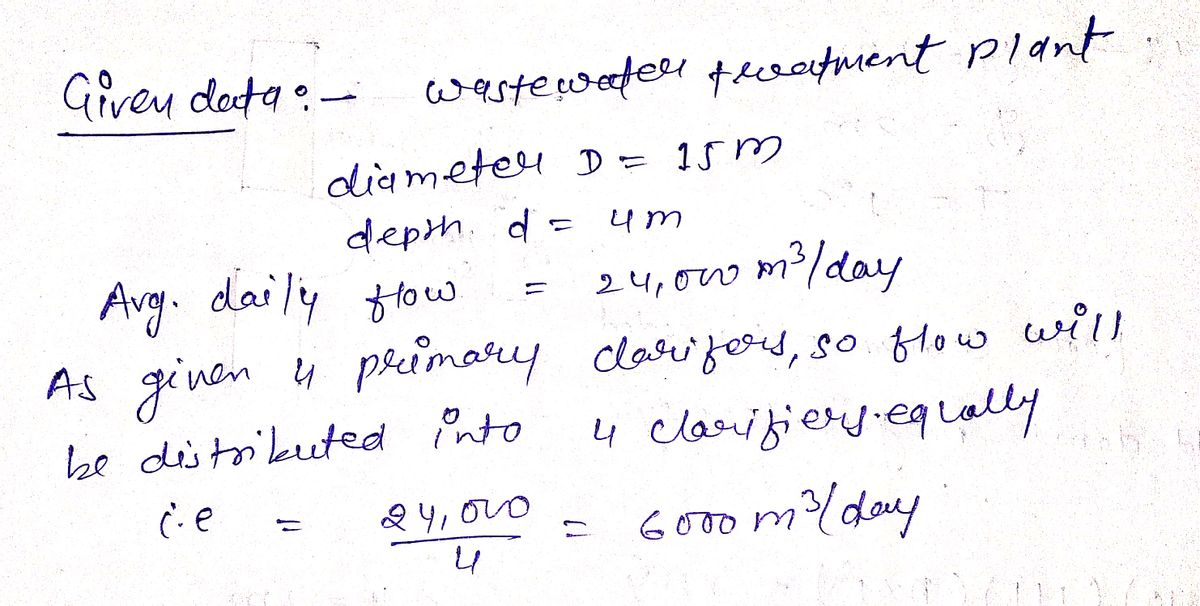 Given data :- wastewater treatment plant
diameter D = 15 m
depth d = 4m
Avg. daily flow = 24,000 m³/day
As given 4 primary clarifers, so flow will
be distributed into 4 clarifiers equally
i.e = 24,000/4 = 6000 m³/day